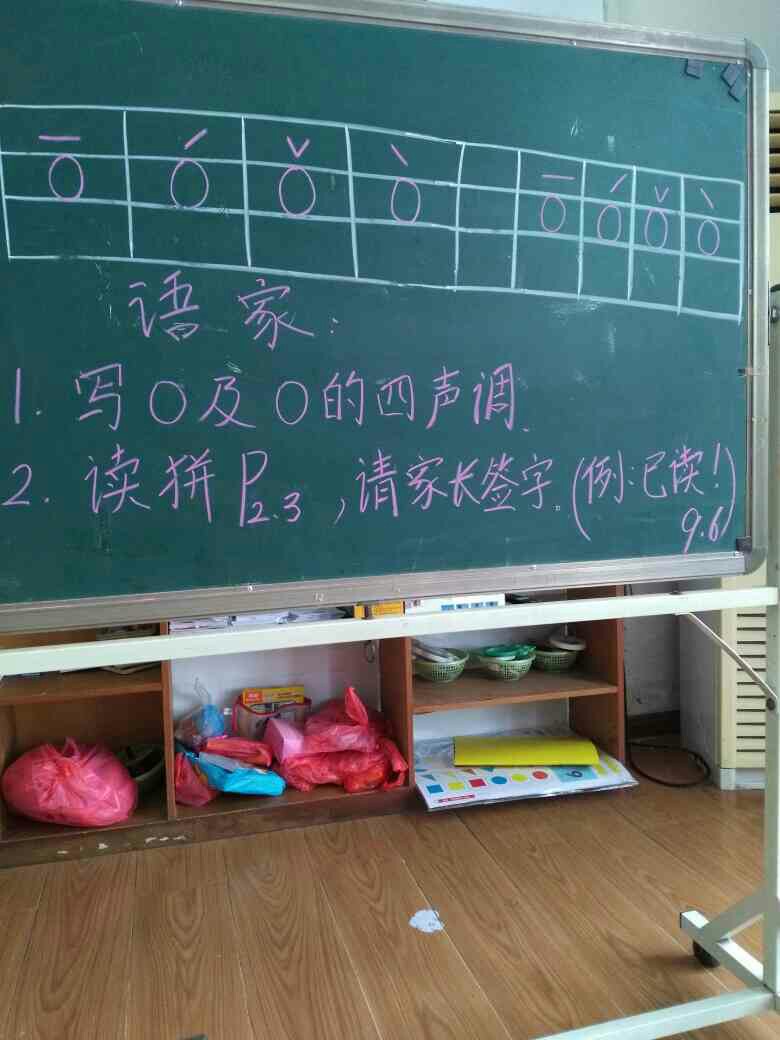 ō ó ǒ ò ō ó ǒ ò
语 家:
1. 写o及o的四声调.
2. 读拼P2.3,请家长签字。(例:已读!
9.6)